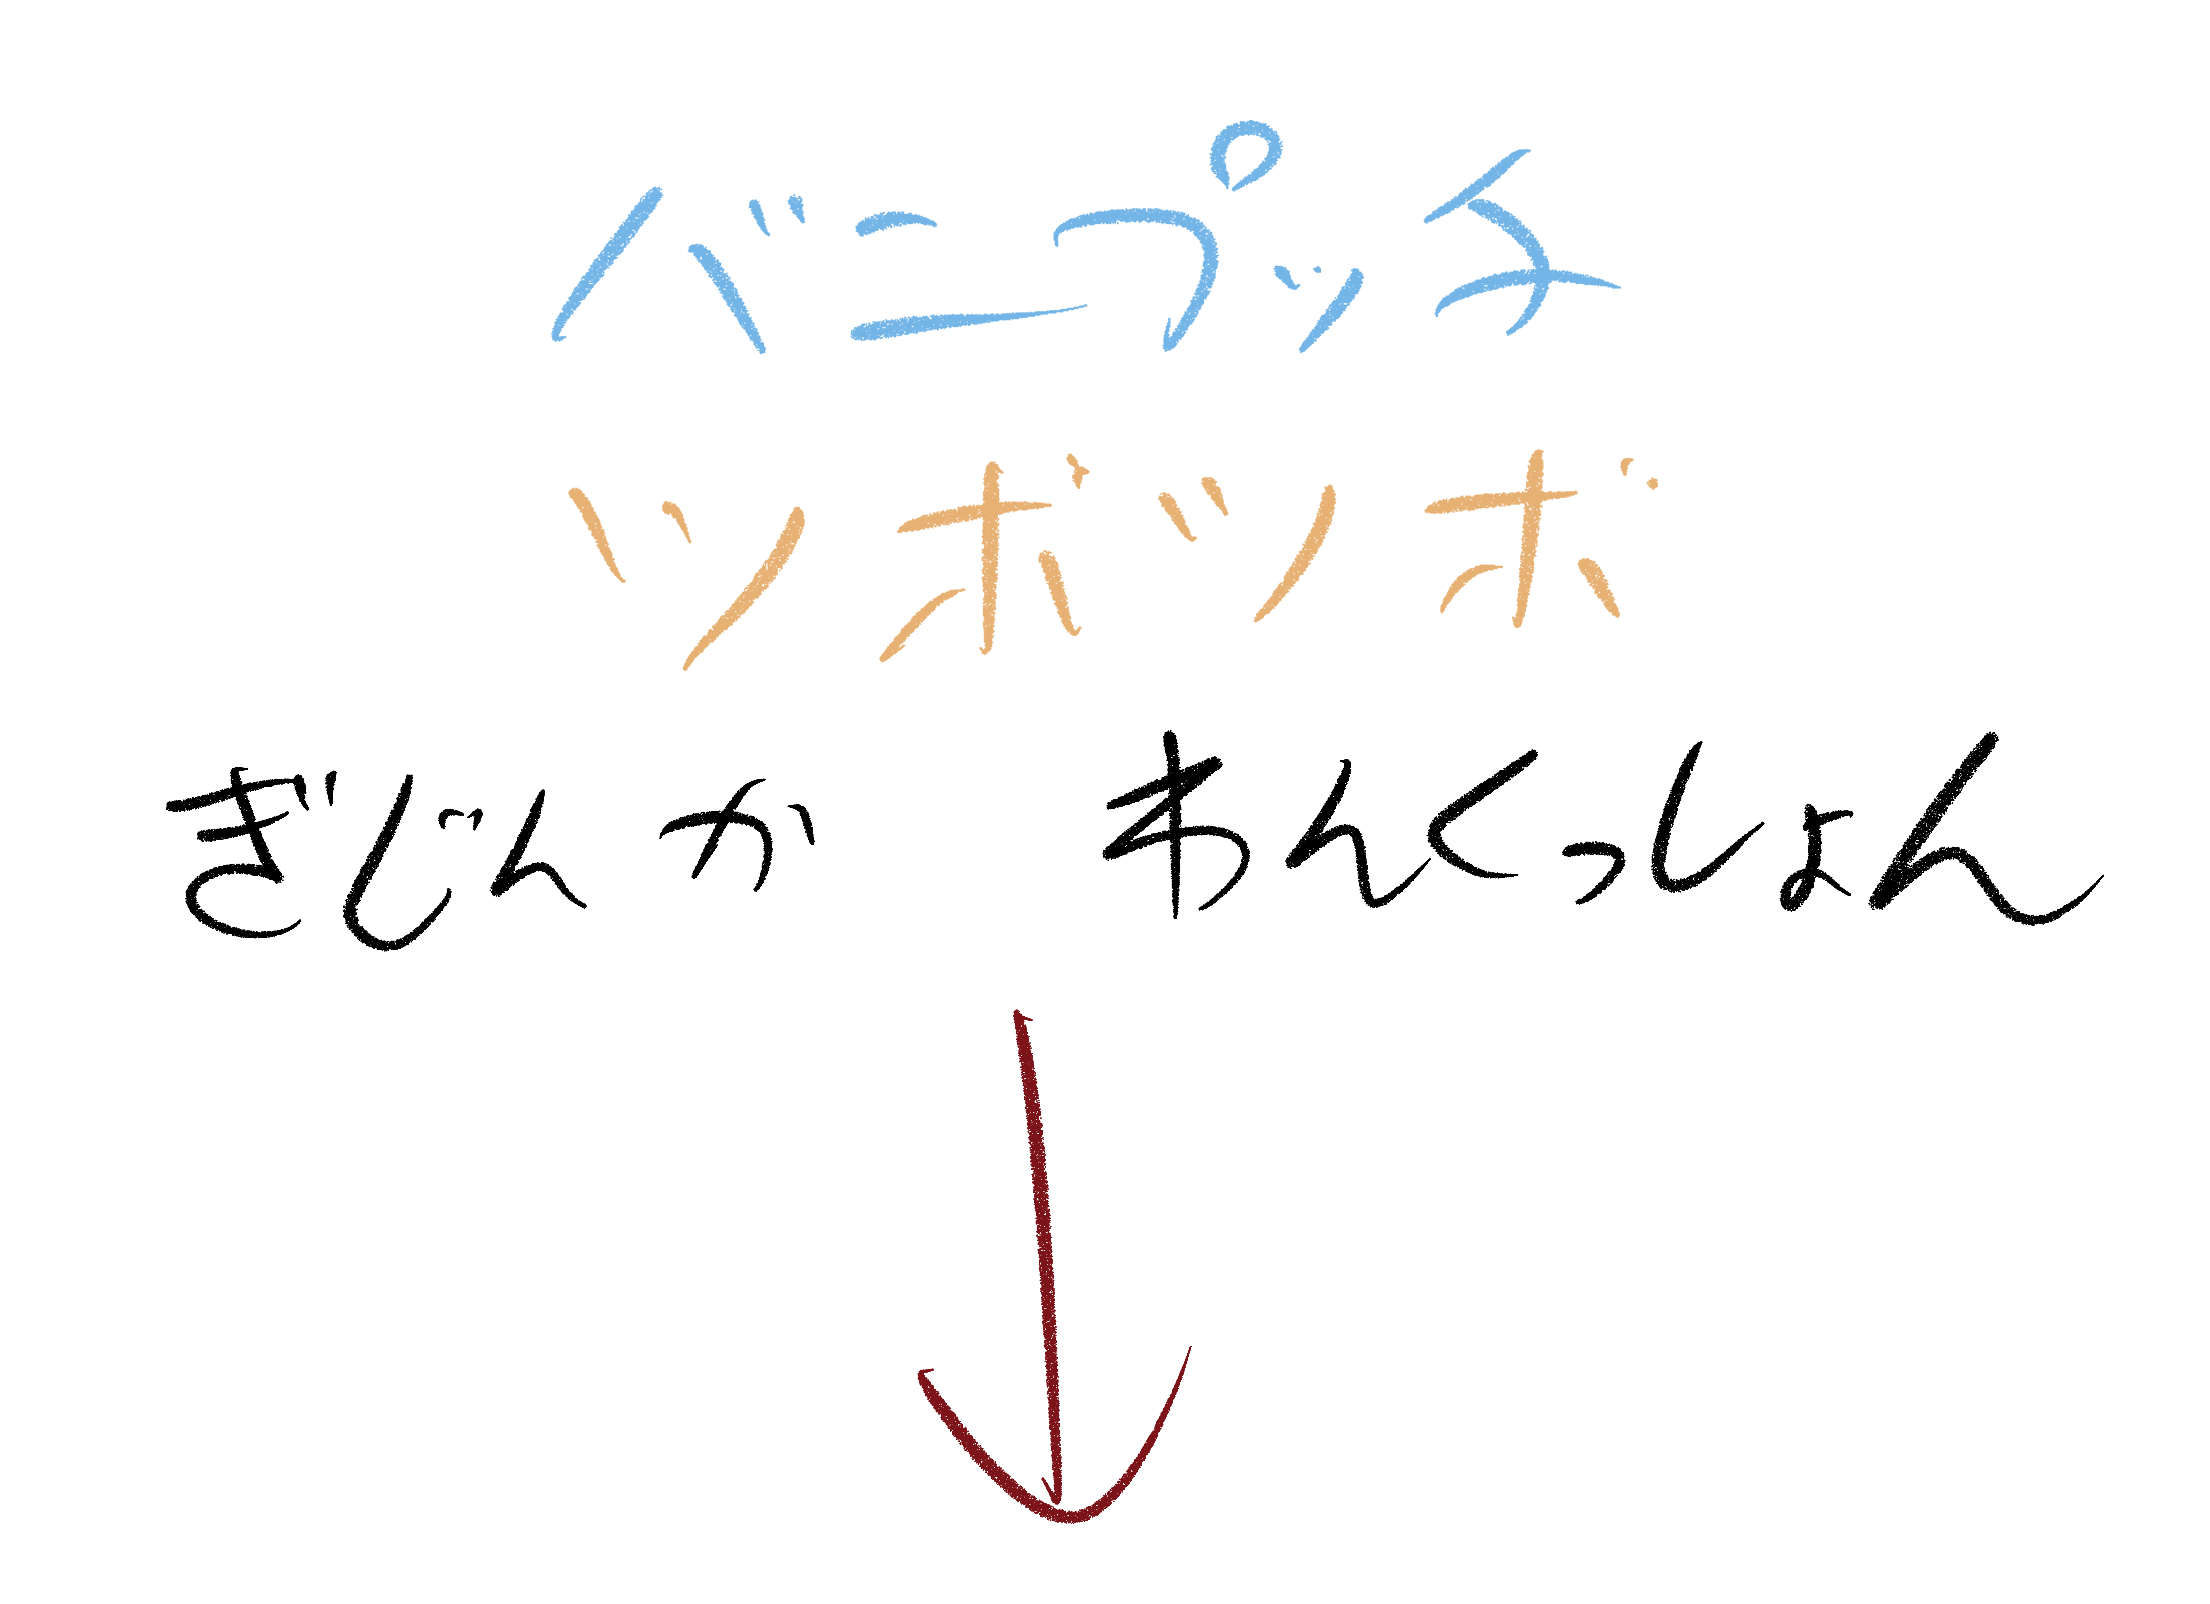 バニプッチ
ツボツボ
ぎじんか わんくっしょん